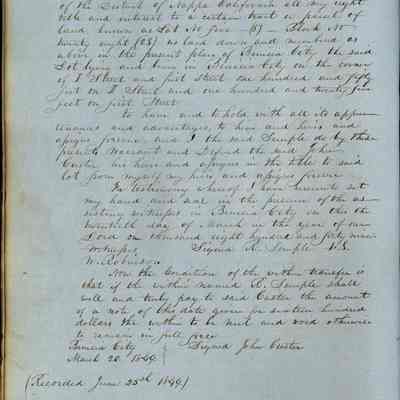 of the District of Nappa California all my right
title and interest to a certain tract or parcel of
land known as Lot No five (5) Block No
twenty eight (28) as laid down and numbered as
above in the present plan of Benicia City the said
Lot lying and being in Benicia City on the corner
of I Street and first Street one hundred and fifty
feet on I Street and one hundred and twenty five
feet on first Street
To have and to hold with all its appur
tenances and advantages, to him and heirs and
assigns forever and I the said Semple do by these
presents Warrant and Defend the said John
Custer his heirs and assigns in the title to said
lot from myself my heirs and assigns forever
In testimony whereof I have hereunto set
my hand and seal in the presence of the as-
sisting witnesses in Benicia City on this the
twentieth day of March in the year of our
Lord on thousand eight hundred and forty nine
Witnesses Signed R. Semple L.S.
W. Robinson
Now the Condition of the within transfer is
that if the within named R. Semple shall
well and truly pay to said Custer the amount
of a note of this date given for sixteen hundred
dollars the within to be null and void otherwise
to remain in full force
Benicia City Signed John Custer
March 20. 1849
(Recorded June 25th 1849)